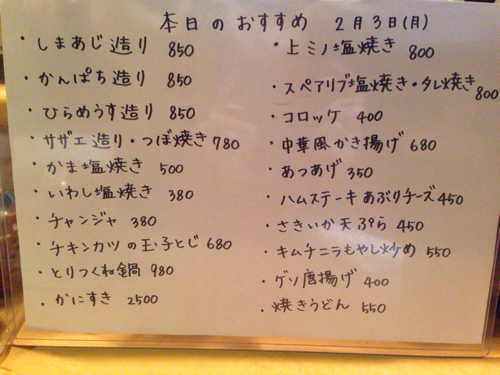 本日のおすすめ 2月3日(月)
・しまあじ造り 850
・かんぱち造り 850
・ひらめうす造り 850
・サザエ造り・つぼ焼き 780
・かま塩焼き 500
・いわし塩焼き 380
・チャンジャ 380
・チキンカツの玉子とじ 680
・とりつくね鍋 980
・かにすき 2500
・上ミノ塩焼き 800
・スペアリブ塩焼き・タレ焼き 800
・コロッケ 400
・中華風かき揚げ 680
・あつあげ 350
・ハムステーキあぶりチーズ 450
・さきいか天ぷら 450
・キムチニラもやし炒め 550
・ゲソ唐揚げ 400
・焼きうどん 550